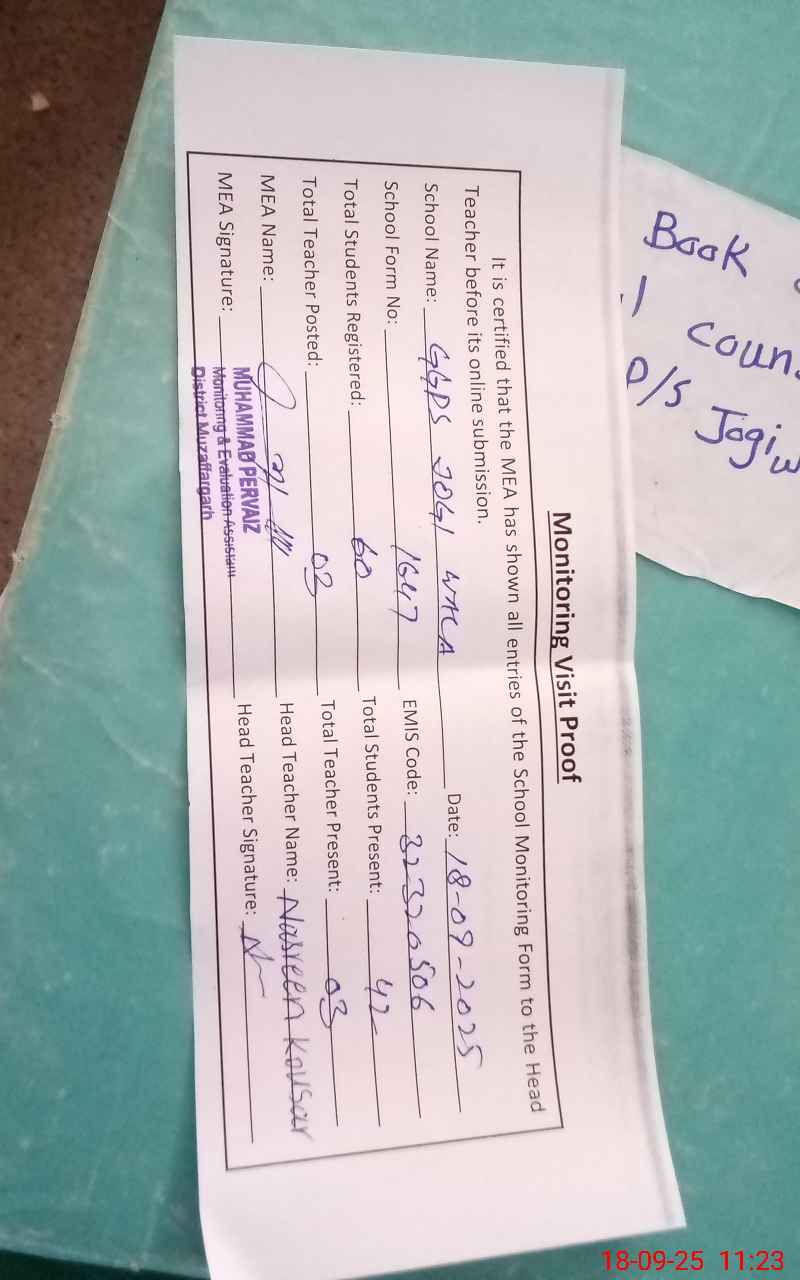 Monitoring Visit Proof
It is certified that the MEA has shown all entries of the School Monitoring Form to the Head
Teacher before its online submission.
School Name: GGPS JOGI WALA Date: 18-09-2025
School Form No: 1647 EMIS Code: 32320506
Total Students Registered: 60 Total Students Present: 42
Total Teacher Posted: 03 Total Teacher Present: 03
MEA Name: Head Teacher Name: Nasreen Kousar
MEA Signature: Head Teacher Signature:
MUHAMMAD PERVAIZ
Monitoring & Evaluation Assistant
District Muzaffargarh
Book
coun
P/S Jogiw
18-09-25 11:23